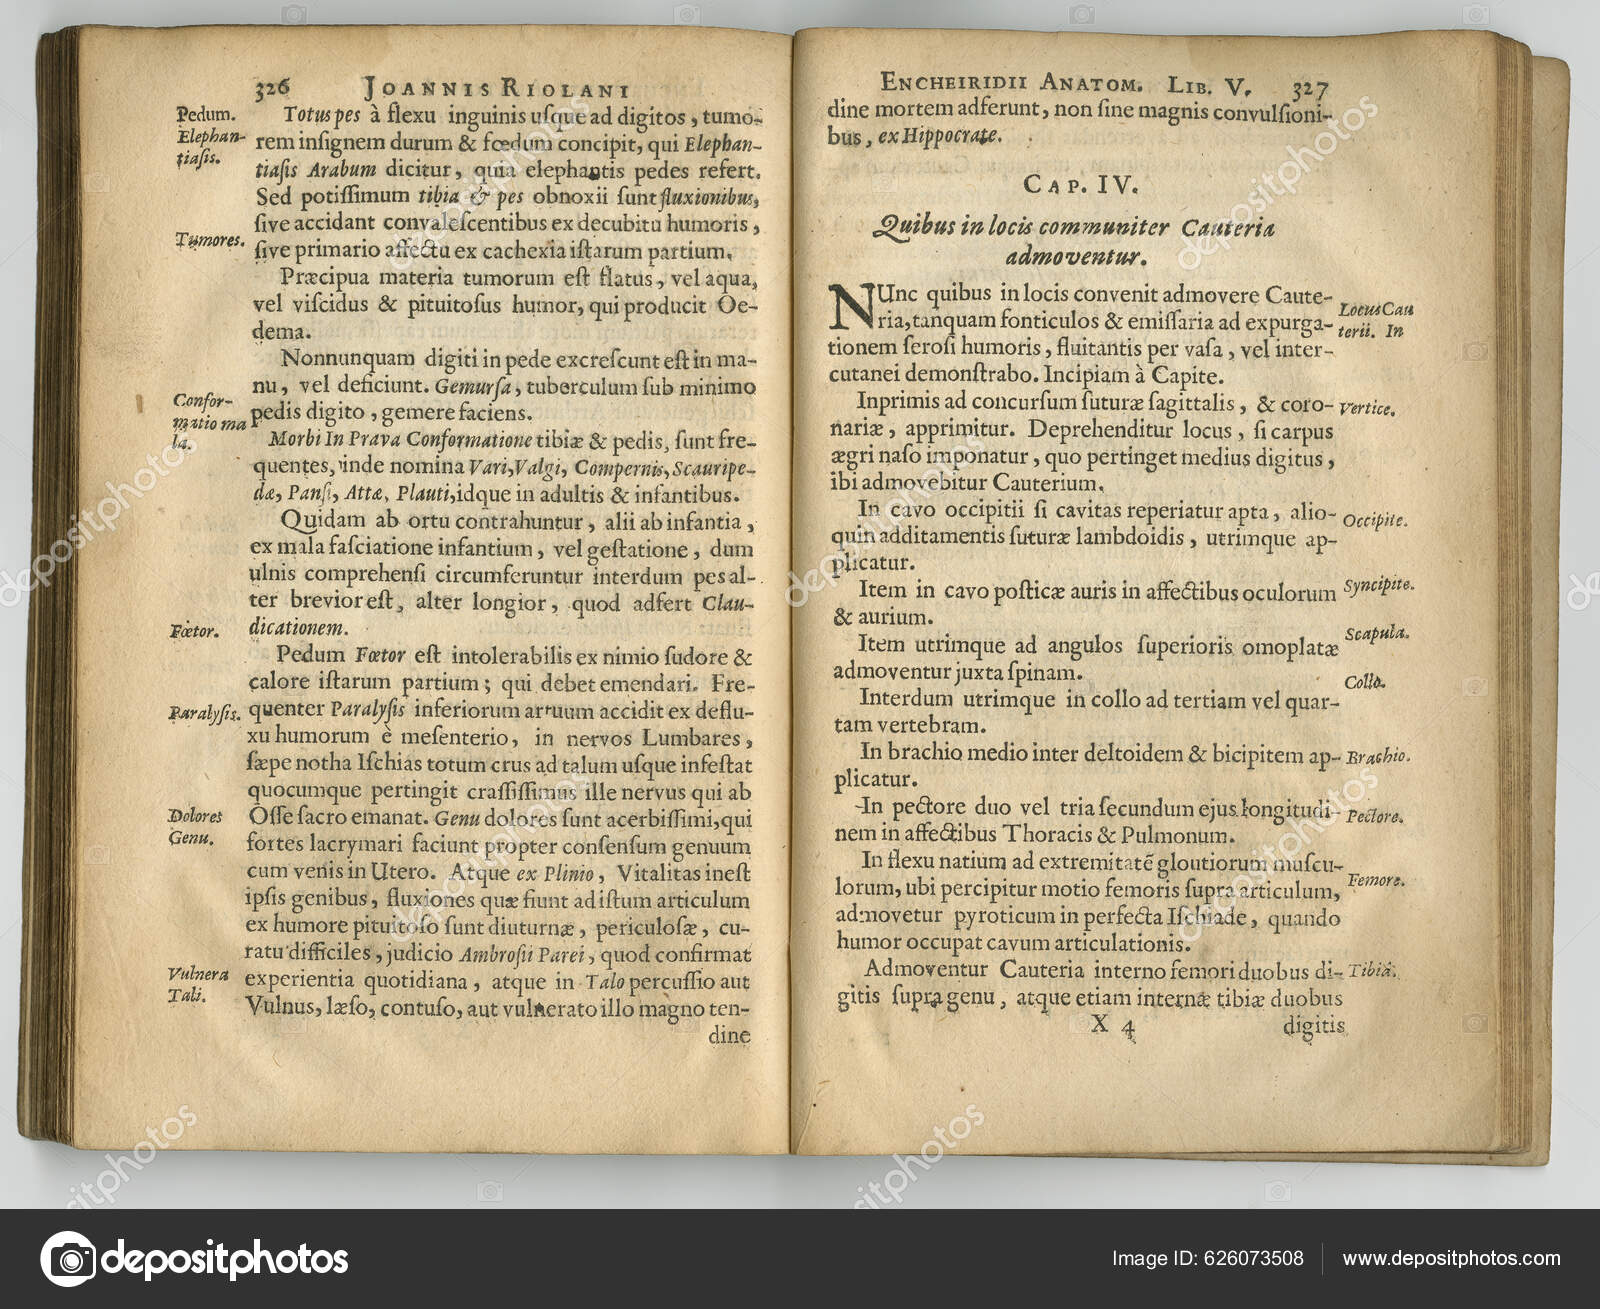 326 JOANNIS RIOLANI
Pedum.
Elephan-
tiasis.
Tumores.
Confor-
matio ma
la.
Fœtor.
Paralysis.
Dolores
Genu.
Vulnera
Tali.
Totus pes à flexu inguinis uſque ad digitos, tumo-
rem inſignem durum & fœdum concipit, qui Elephan-
tiaſis Arabum dicitur, quia elephantis pedes refert.
Sed potiſſimum tibia & pes obnoxii ſunt fluxionibus,
ſive accidant convaleſcentibus ex decubitu humoris,
ſive primario affectu ex cachexia iſtarum partium.
Præcipua materia tumorum eſt flatus, vel aqua,
vel viſcidus & pituitoſus humor, qui producit Oe-
dema.
Nonnunquam digiti in pede excreſcunt eſt in ma-
nu, vel deficiunt. Gemurſa, tuberculum ſub minimo
pedis digito, gemere faciens.
Morbi In Prava Conformatione tibiæ & pedis, ſunt fre-
quentes, inde nomina Vari, Valgi, Compernis, Scauripe-
dæ, Panſi, Attæ, Plauti, idque in adultis & infantibus.
Quidam ab ortu contrahuntur, alii ab infantia,
ex mala faſciatione infantium, vel geſtatione, dum
ulnis comprehenſi circumferuntur interdum pes al-
ter brevior eſt, alter longior, quod adfert Clau-
dicationem.
Pedum Fœtor eſt intolerabilis ex nimio ſudore &
calore iſtarum partium; qui debet emendari. Fre-
quenter Paralyſis inferiorum artuum accidit ex deflu-
xu humorum è meſenterio, in nervos Lumbares,
ſæpe notha Iſchias totum crus ad talum uſque infeſtat
quocumque pertingit craſſiſſimus ille nervus qui ab
Oſſe ſacro emanat. Genu dolores ſunt acerbiſſimi, qui
fortes lacrymari faciunt propter conſenſum genuum
cum venis in Utero. Atque ex Plinio, Vitalitas ineſt
ipſis genibus, fluxiones quæ fiunt ad iſtum articulum
ex humore pituitoſo ſunt diuturnæ, periculoſæ, cu-
ratu difficiles, judicio Ambroſii Parei, quod confirmat
experientia quotidiana, atque in Talo percuſſio aut
Vulnus, læſo, contuſo, aut vulnerato illo magno ten-
dine
ENCHEIRIDII ANATOM. LIB. V. 327
dine mortem adferunt, non ſine magnis convulſioni-
bus, ex Hippocrate.
CAP. IV.
Quibus in locis communiter Cauteria
admoventur.
NUnc quibus in locis convenit admovere Caute-
ria, tanquam fonticulos & emiſſaria ad expurga-
tionem ſeroſi humoris, fluitantis per vaſa, vel inter-
cutanei demonſtrabo. Incipiam à Capite.
Inprimis ad concurſum ſuturæ ſagittalis, & coro-
nariæ, apprimitur. Deprehenditur locus, ſi carpus
ægri naſo imponatur, quo pertinget medius digitus,
ibi admovebitur Cauterium.
In cavo occipitii ſi cavitas reperiatur apta, alio-
quin additamentis ſuturæ lambdoidis, utrimque ap-
plicatur.
Item in cavo poſticæ auris in affectibus oculorum
& aurium.
Item utrimque ad angulos ſuperioris omoplatæ
admoventur juxta ſpinam.
Interdum utrimque in collo ad tertiam vel quar-
tam vertebram.
In brachio medio inter deltoidem & bicipitem ap-
plicatur.
In pectore duo vel tria ſecundum ejus longitudi-
nem in affectibus Thoracis & Pulmonum.
In flexu natium ad extremitatē gloutiorum muſcu-
lorum, ubi percipitur motio femoris ſupra articulum,
admovetur pyroticum in perfecta Iſchiade, quando
humor occupat cavum articulationis.
Admoventur Cauteria interno femori duobus di-
gitis ſupra genu, atque etiam internæ tibiæ duobus
X 4 digitis
Locus Cau
terii. In
Vertice.
Occipite.
Syncipite.
Scapula.
Collo.
Brachio.
Pectore.
Femore.
Tibiâ.
depositphotos
Image ID: 626073508
www.depositphotos.com